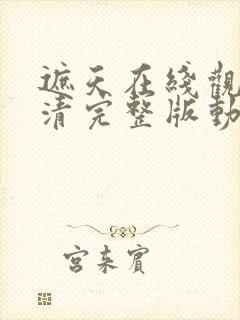 遮天在綫觀
清完整版動
宮來賓